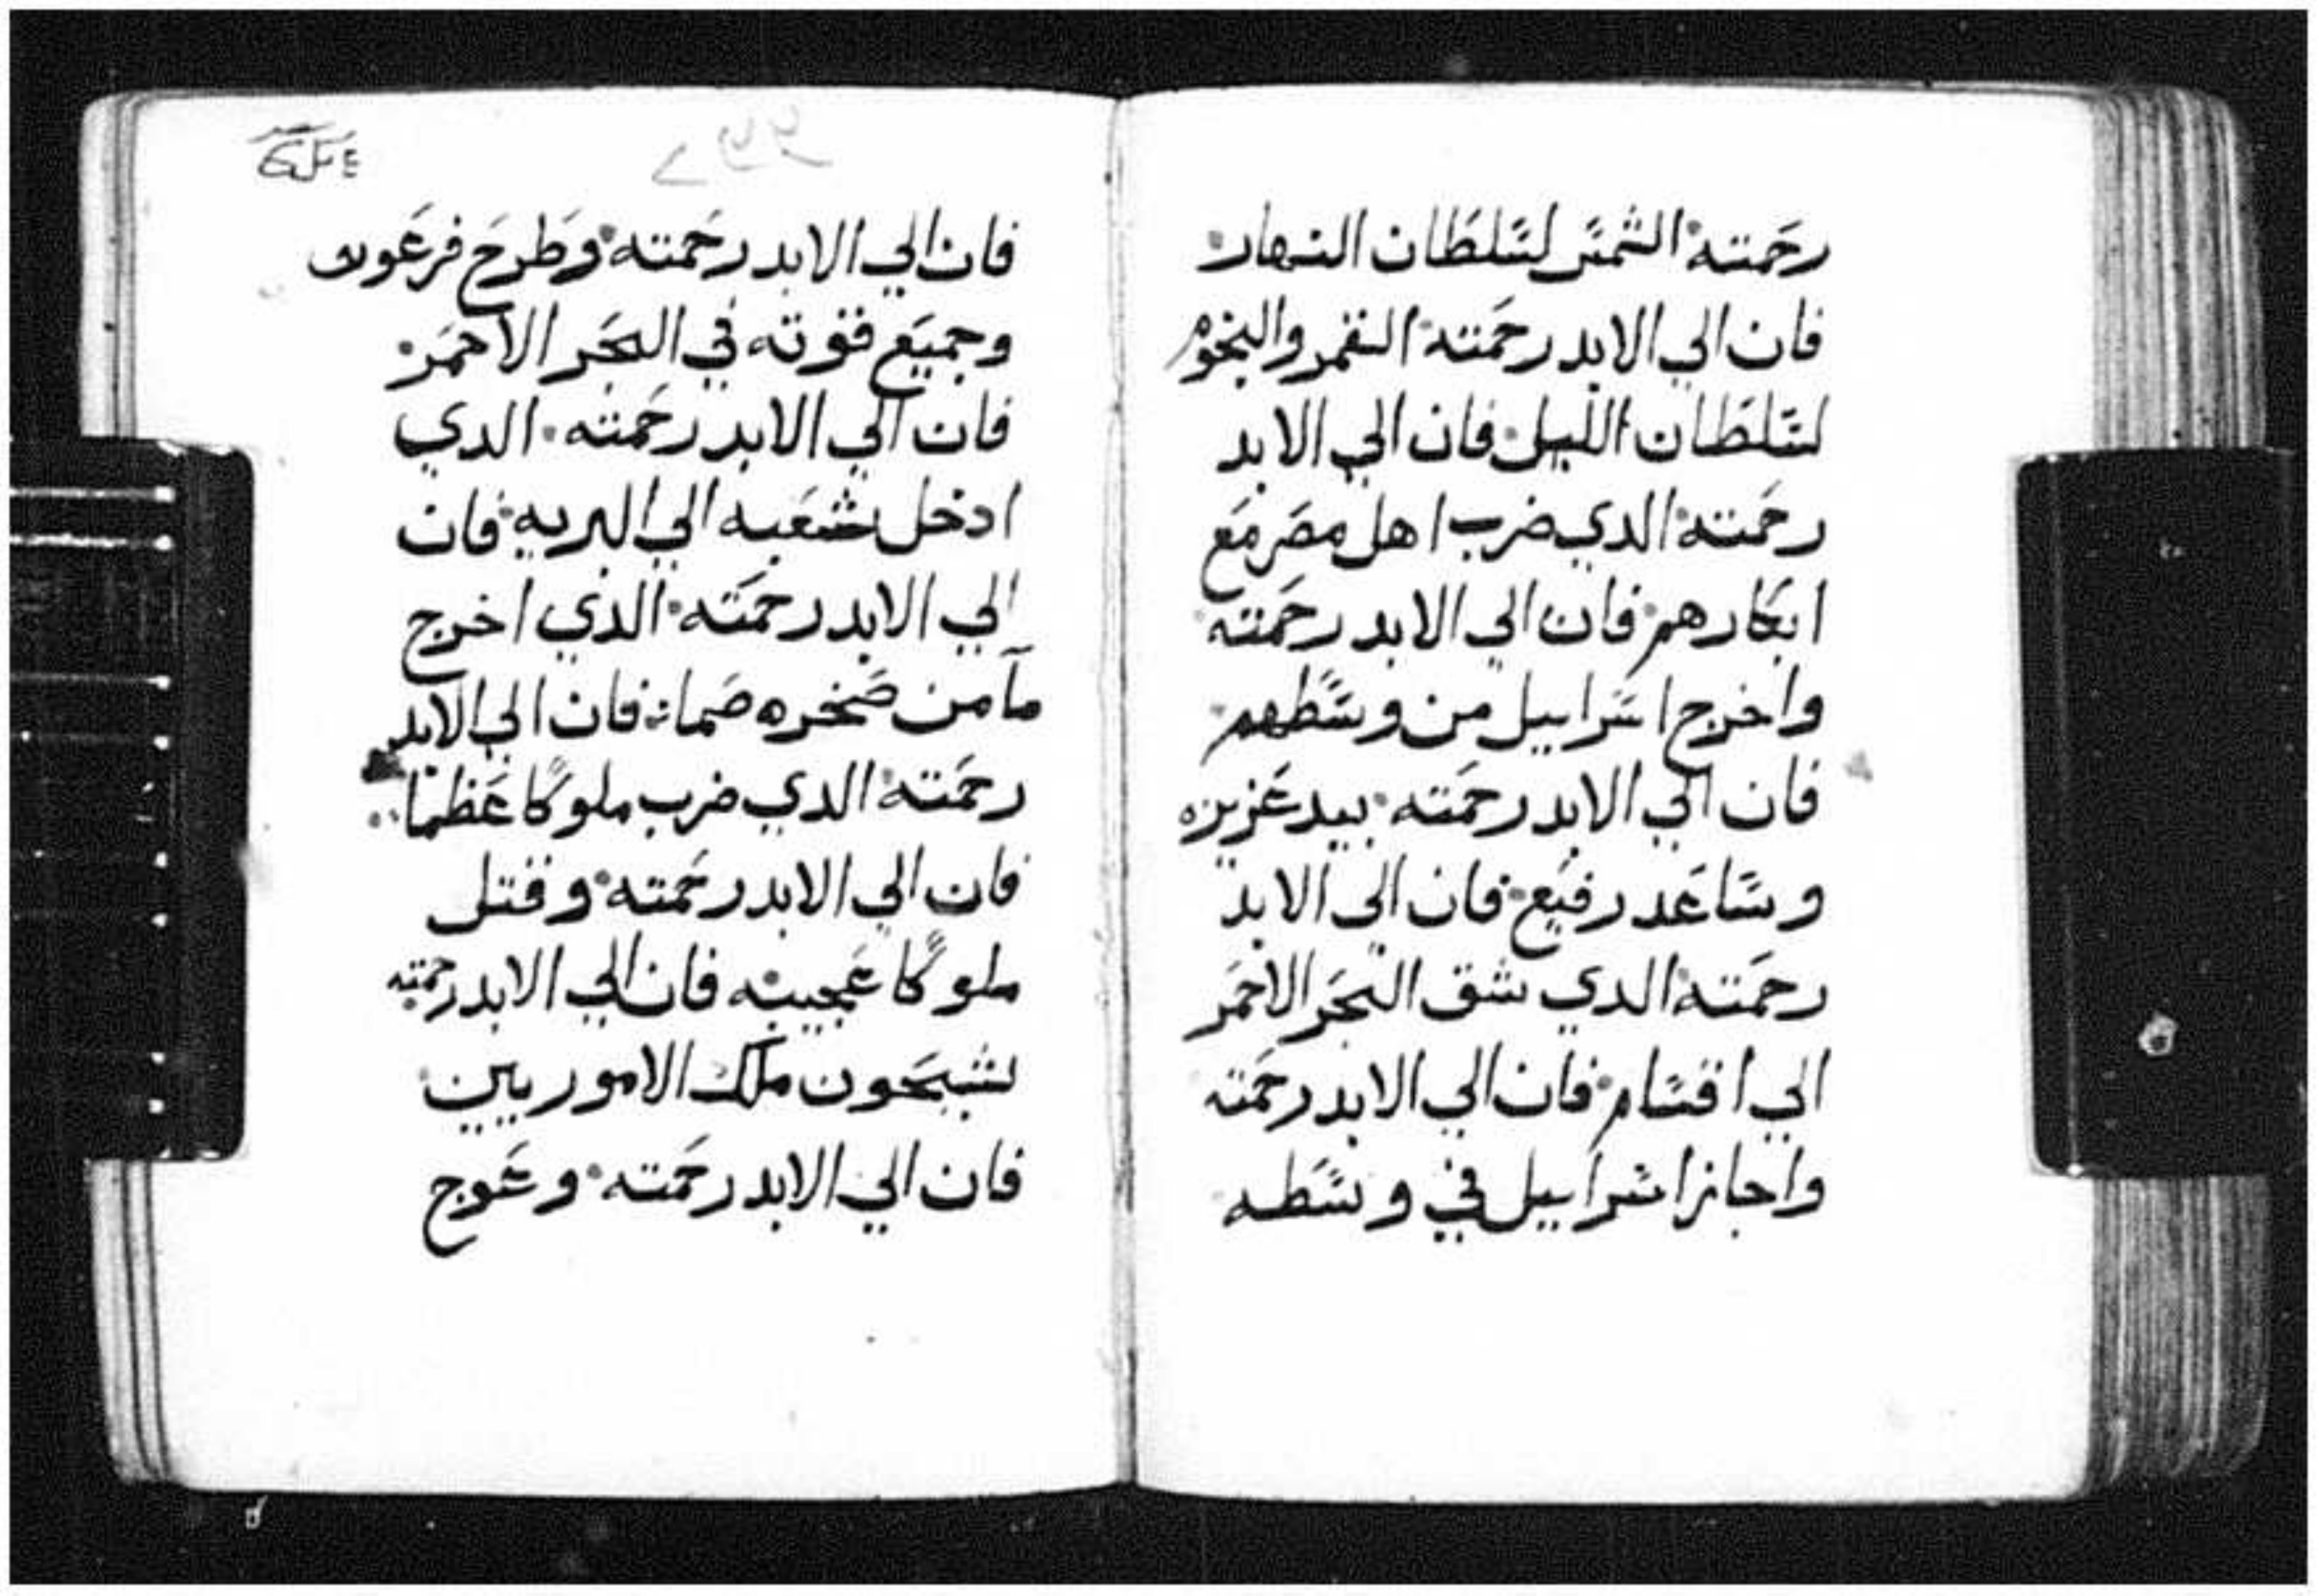 رحمته الشمس لسلطان النهار
فان الي الابد رحمته القمر والنجوم
لسلطان الليل فان الي الابد
رحمته الدي ضرب اهل مصر مع
ابكارهم فان الي الابد رحمته
واخرج اسراييل من وسطهم
فان الي الابد رحمته بيد عزيزه
وساعد رفيع فان الي الابد
رحمته الدي شق البحر الاحمر
الي اقسام فان الي الابد رحمته
واجاز اسراييل في وسطه
فان الي الابد رحمته وطرح فرعون
وجميع قوته في البحر الاحمر
فان الي الابد رحمته الدي
ادخل شعبه الي البريه فان
الي الابد رحمته الذي اخرج
مآ من صخره صما فان الي الابد
رحمته الدي ضرب ملوكًا عظما
فان الي الابد رحمته وقتل
ملوكًا عجيبه فان الي الابد رحمته
لشيحون ملك الاموريين
فان الي الابد رحمته وعوج